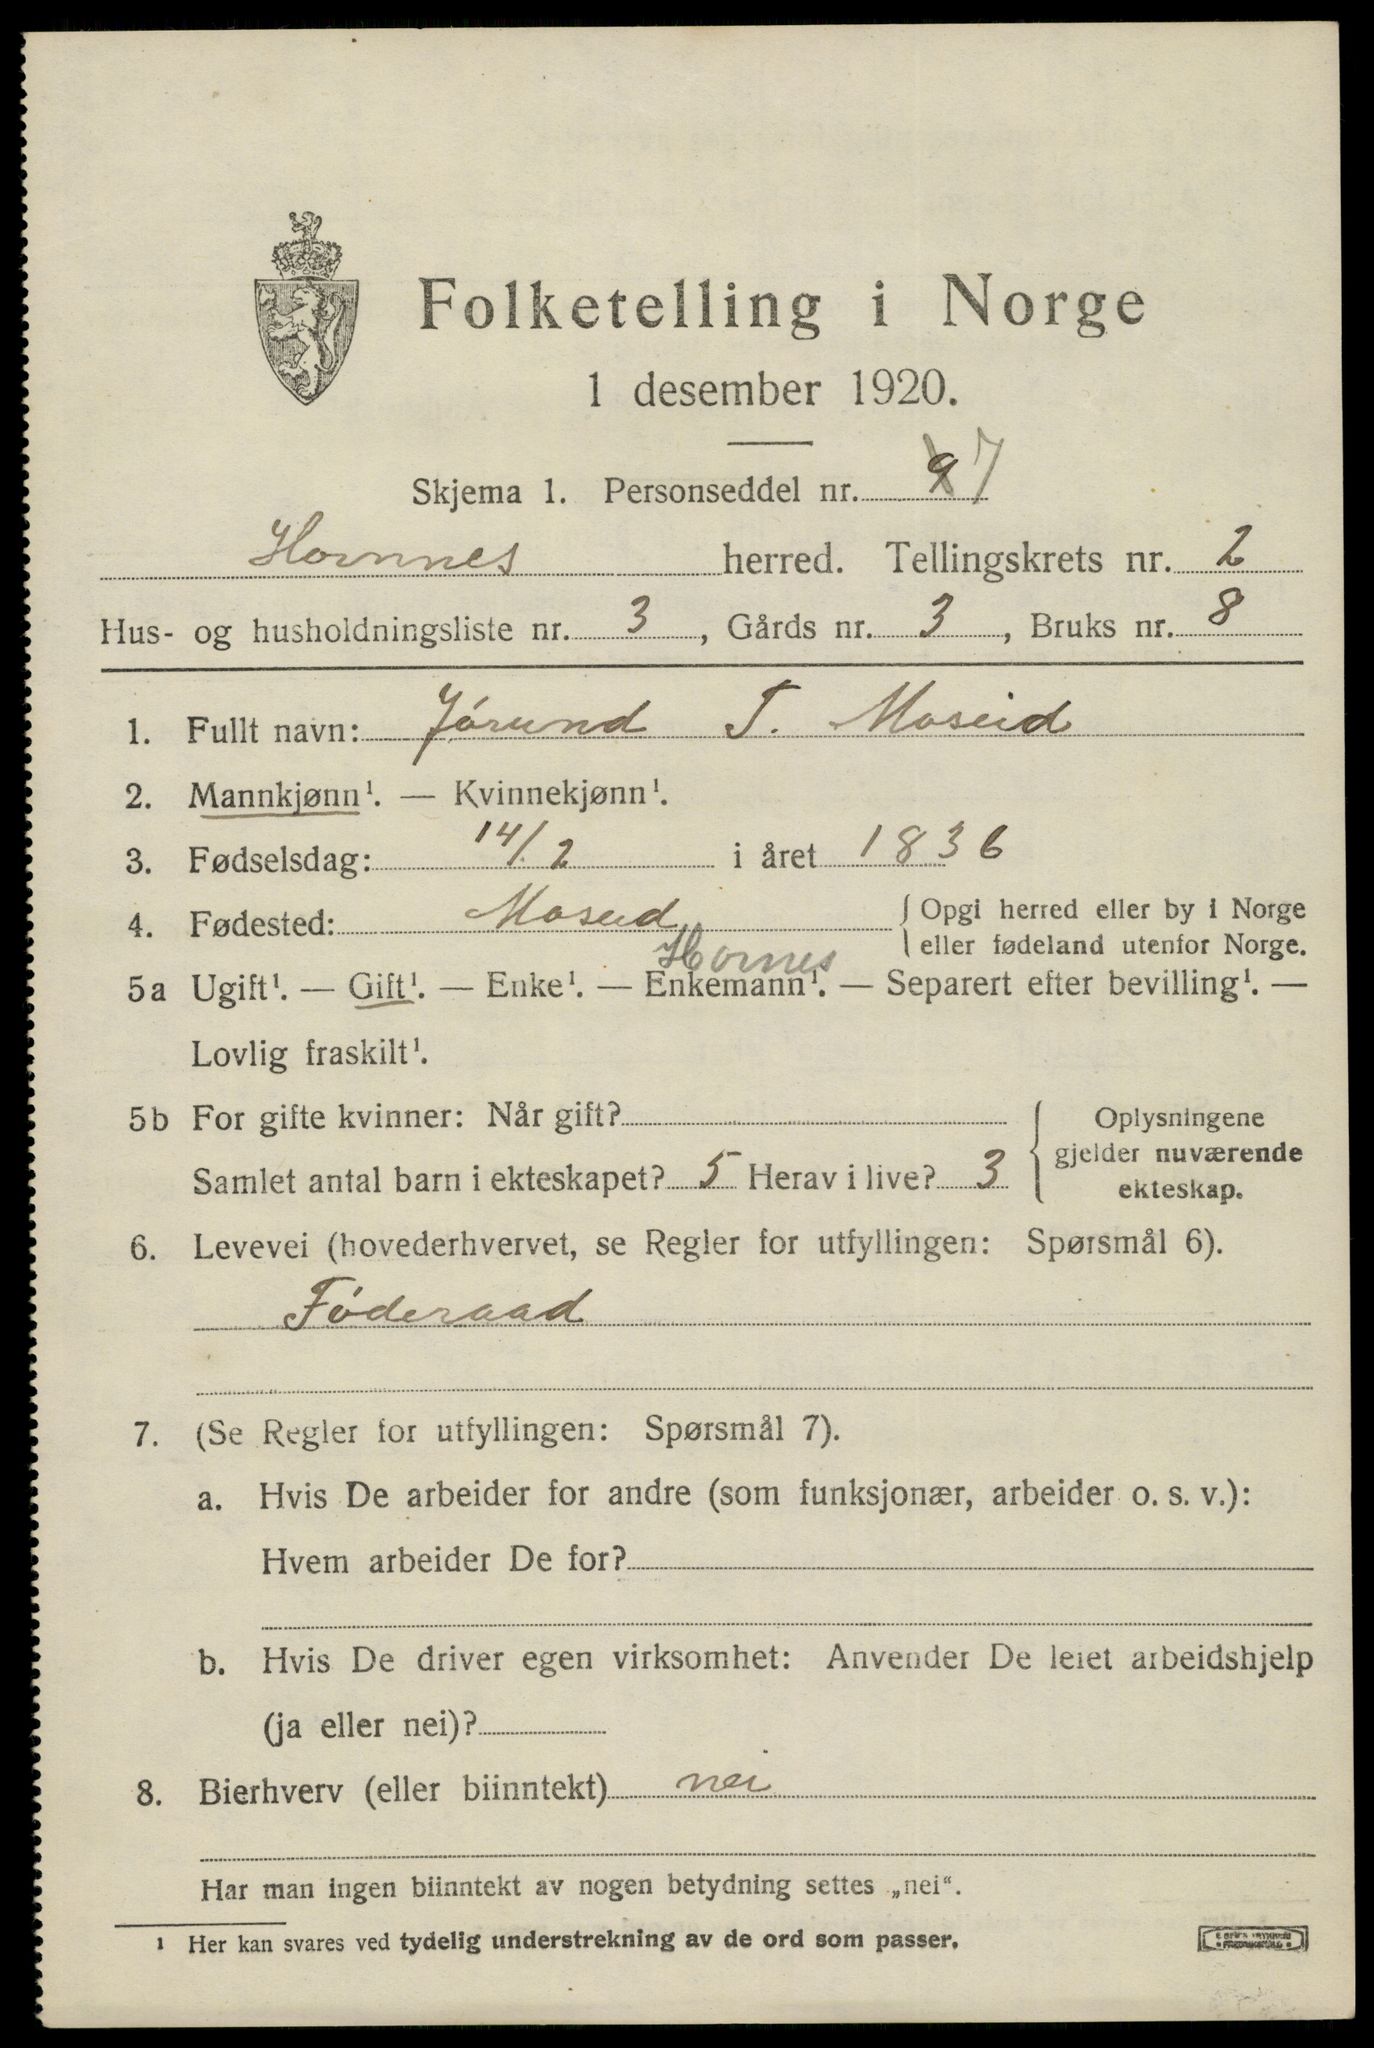 Folketelling i Norge
1 desember 1920.
Skjema 1. Personseddel nr. 9 7
Hornnes herred. Tellingskrets nr. 2
Hus- og husholdningsliste nr. 3, Gårds nr. 3, Bruks nr. 8
1. Fullt navn: Jórund T. Moseid
2. Mannkjønn¹. — Kvinnekjønn¹.
3. Fødselsdag: 14/2 i året 1836
4. Fødested: Moseid { Opgi herred eller by i Norge
eller fødeland utenfor Norge.
Hornes
5a Ugift¹. — Gift¹. — Enke¹. — Enkemann¹. — Separert efter bevilling¹. —
Lovlig fraskilt¹.
5b For gifte kvinner: Når gift? { Oplysningene
gjelder nuværende
Samlet antal barn i ekteskapet? 5 Herav i live? 3
ekteskap.
6. Levevei (hovederhvervet, se Regler for utfyllingen: Spørsmål 6).
Fóderaad
7. (Se Regler for utfyllingen: Spørsmål 7).
a. Hvis De arbeider for andre (som funksjonær, arbeider o. s. v.):
Hvem arbeider De for?
b. Hvis De driver egen virksomhet: Anvender De leiet arbeidshjelp
(ja eller nei)?
8. Bierhverv (eller biinntekt) nei
Har man ingen biinntekt av nogen betydning settes „nei“.
¹ Her kan svares ved tydelig understrekning av de ord som passer.